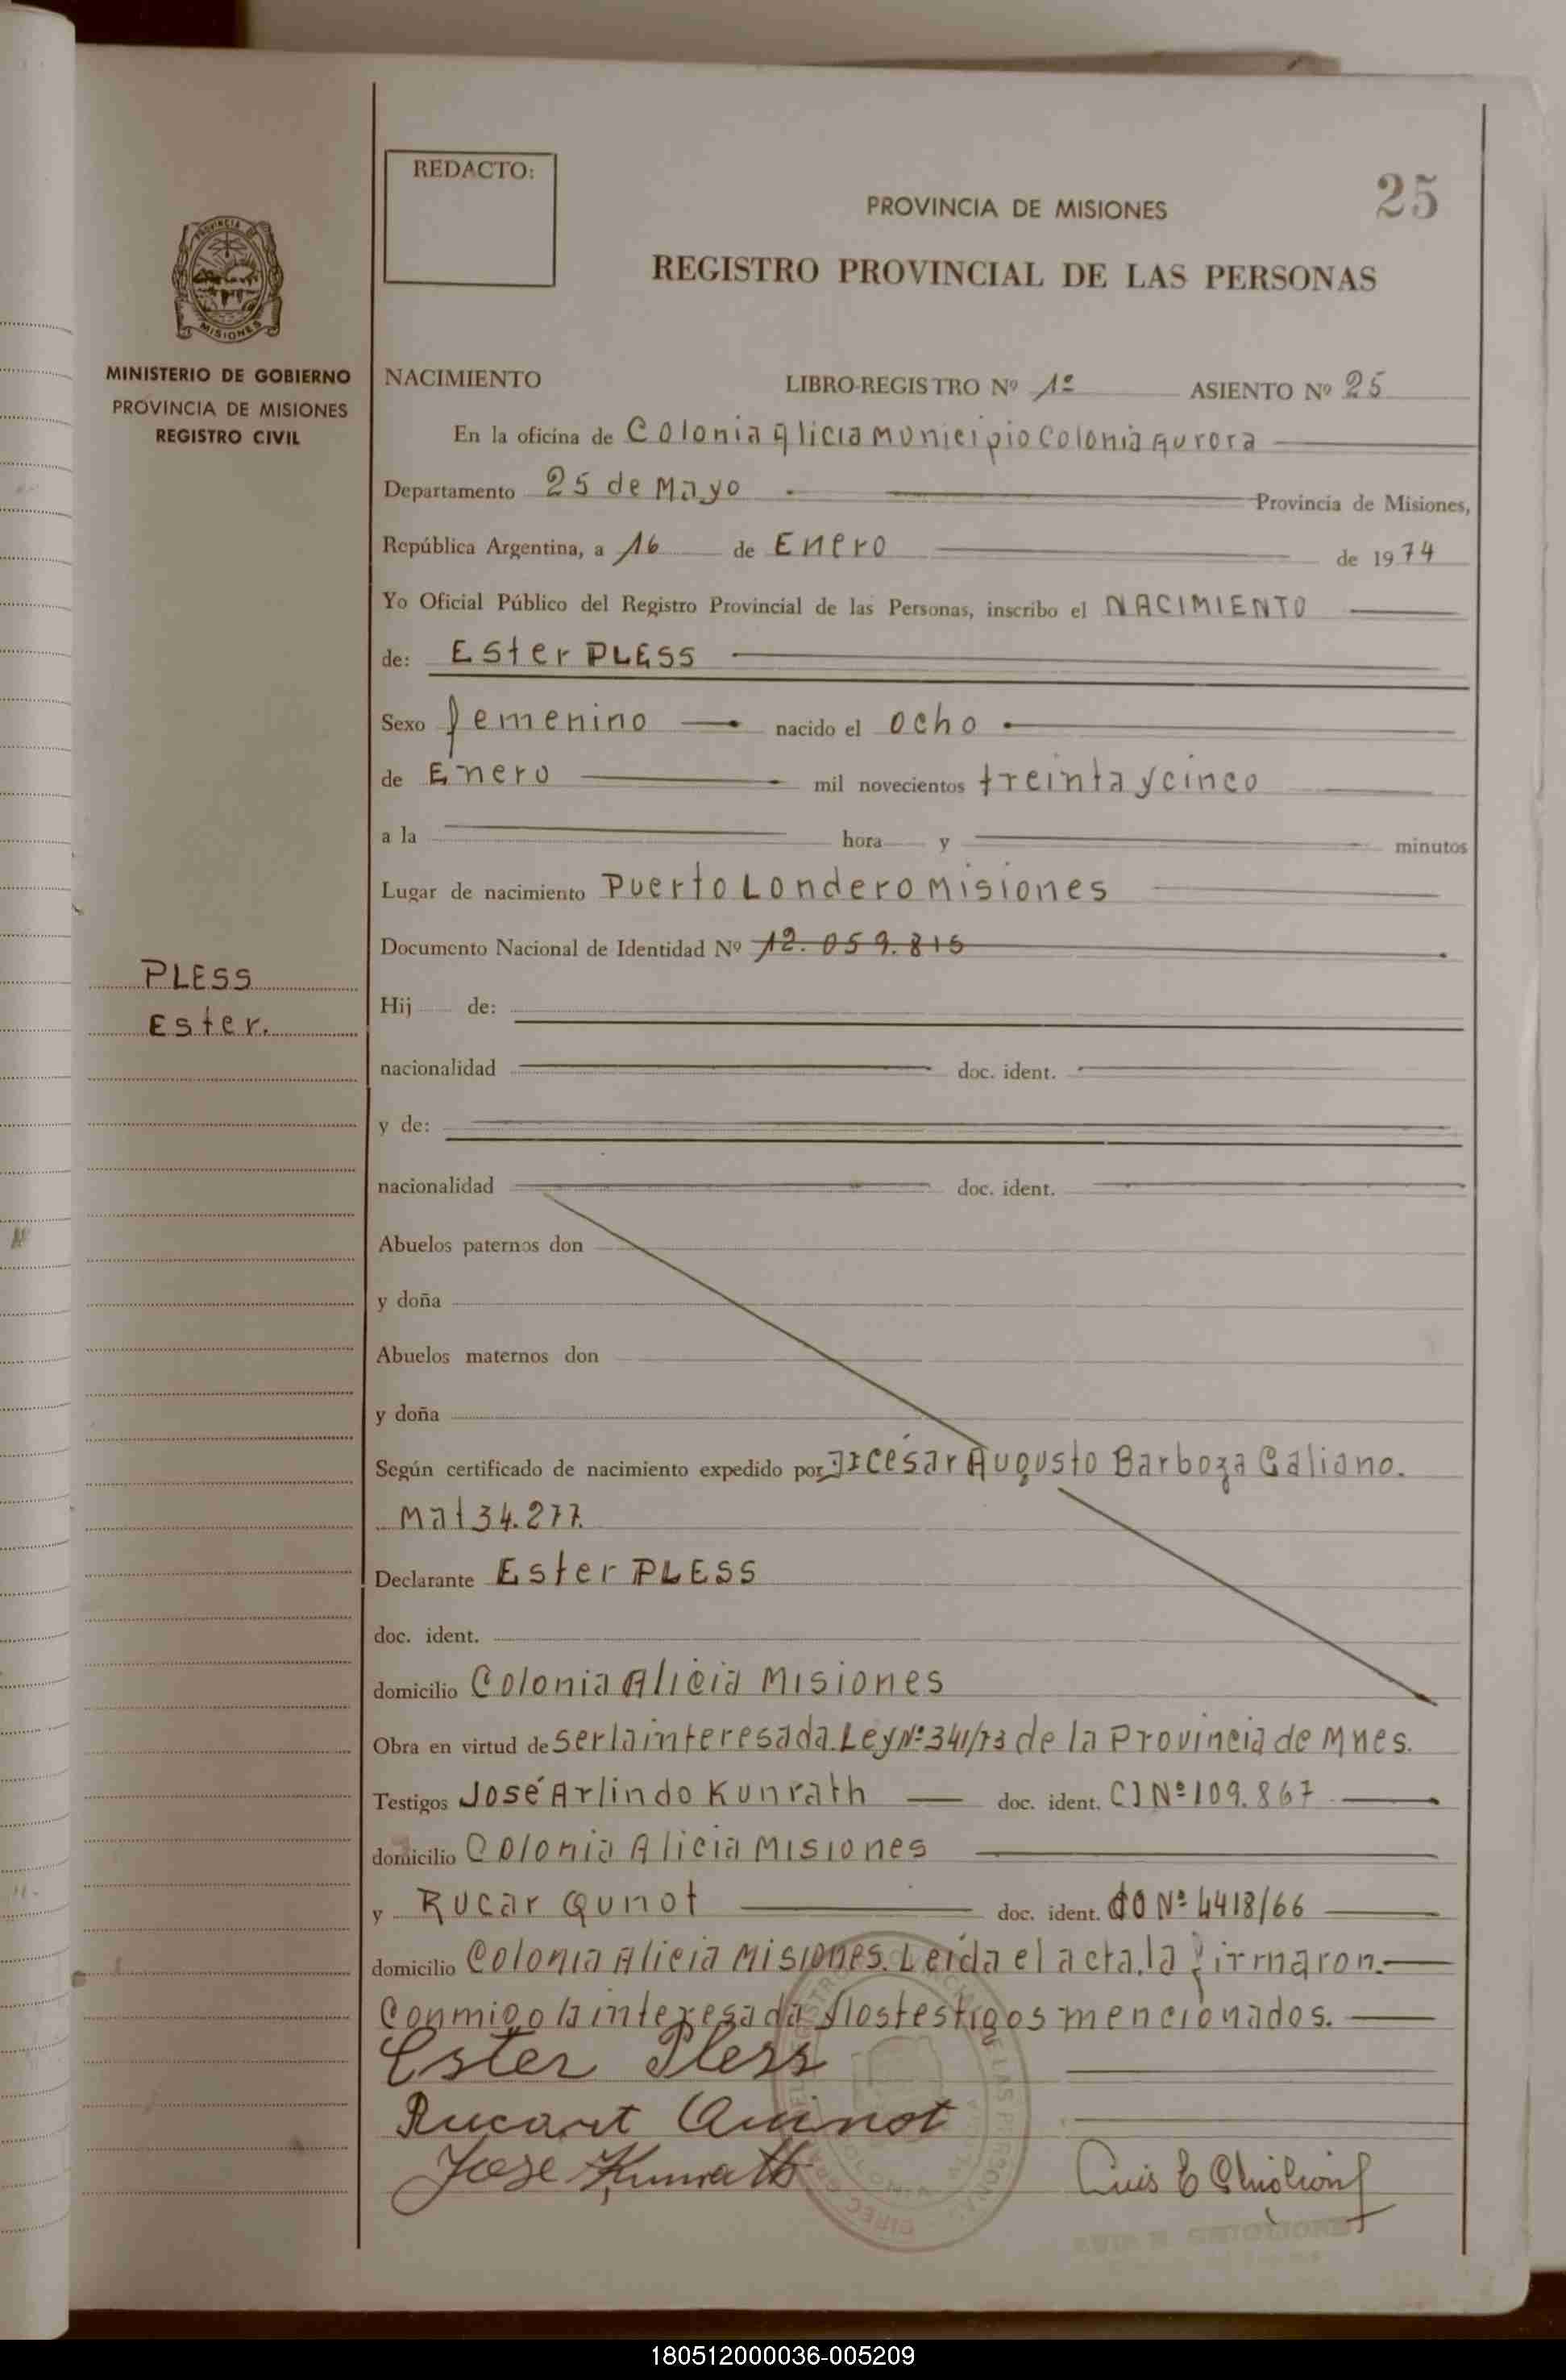 REDACTO:
PROVINCIA DE MISIONES
25
REGISTRO PROVINCIAL DE LAS PERSONAS
PROVINCIA DE
MISIONES
MINISTERIO DE GOBIERNO
PROVINCIA DE MISIONES
REGISTRO CIVIL
NACIMIENTO LIBRO-REGISTRO Nº 1º ASIENTO Nº 25
En la oficina de Colonia Alicia Municipio Colonia Aurora
Departamento 25 de Mayo Provincia de Misiones,
República Argentina, a 16 de Enero de 1974
Yo Oficial Público del Registro Provincial de las Personas, inscribo el NACIMIENTO
de: Ester PLESS
Sexo femenino nacido el ocho
de Enero mil novecientos treinta y cinco
a la hora y minutos
Lugar de nacimiento Puerto Londero Misiones
Documento Nacional de Identidad Nº 12.059.815
PLESS
Ester.
Hij de:
nacionalidad doc. ident.
y de:
nacionalidad doc. ident.
Abuelos paternos don
y doña
Abuelos maternos don
y doña
Según certificado de nacimiento expedido por César Augusto Barboza Galiano.
Mat 34.277.
Declarante Ester PLESS
doc. ident.
domicilio Colonia Alicia Misiones
Obra en virtud de ser la interesada. Ley Nº 341/73 de la Provincia de Mnes.
Testigos José Arlindo Kunrath doc. ident. CI Nº 109.867
domicilio Colonia Alicia Misiones
y Rucar Qunot doc. ident. Nº 4418/66
domicilio Colonia Alicia Misiones. Leída el acta, la firmaron
Conmigo la interesada y los testigos mencionados.
Ester Pless
Rucart
Jose Kunrath
Luis E
180512000036-005209